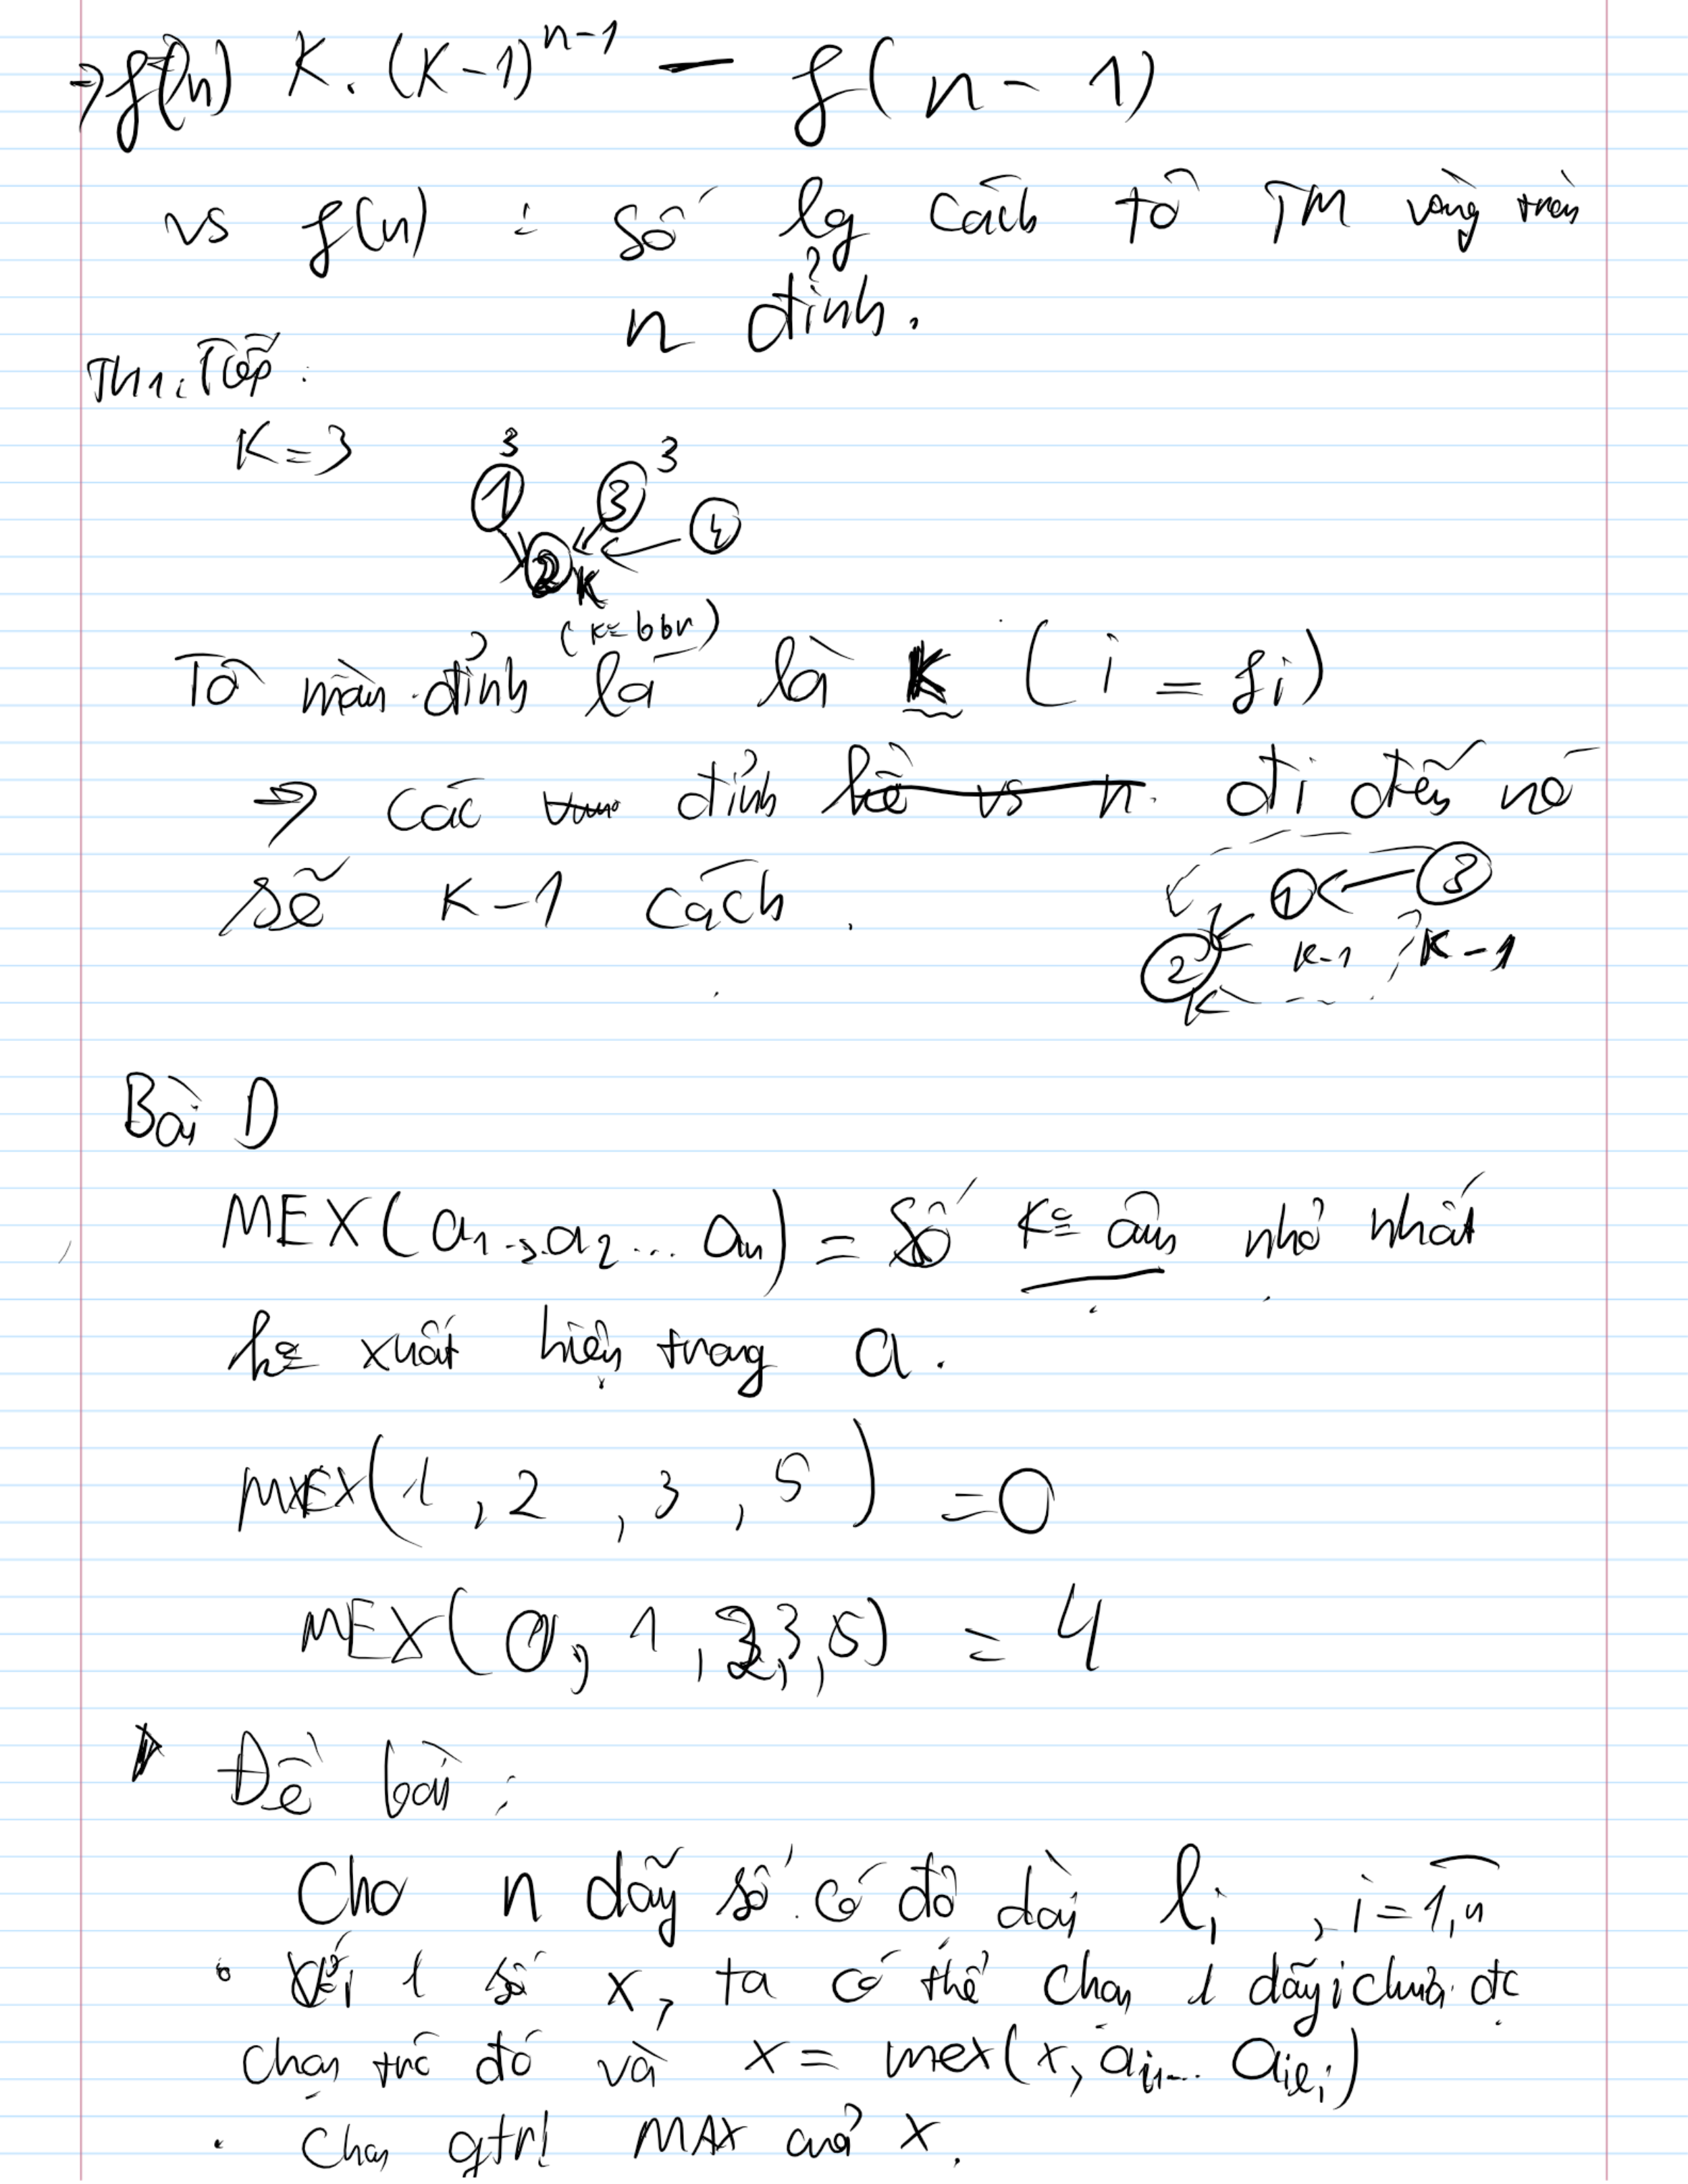 ⇒ f(n) = K. (K-1)^{n-1} — f(n-1)
vs f(n) : số lg cách tô TM vòng tròn
n đỉnh.
TH1: Tiếp:
K=3
3 3
1 3 4
2 K
(K≤ bbr)
Tô màu đỉnh lá là K (i = fi)
⇒ các đỉnh kề vs n. đi đến nó
sẽ K-1 cách.
1 ← 3
2 K-1 K-1
Bài D
MEX(a1, a2... an) = Số K° âm nhỏ nhất
k° xuất hiện trong a.
MEX(1, 2, 3, 5) = 0
MEX(0, 1, 2, 3, 5) = 4
Đề bài:
Cho n dãy số có độ dài li, i=1,n
• Với 1 số x, ta có thể chọn 1 dãy i chưa đc
chọn trc đó và x = mex(x, ai1... aili)
• Chọn gtrị MAX của x.